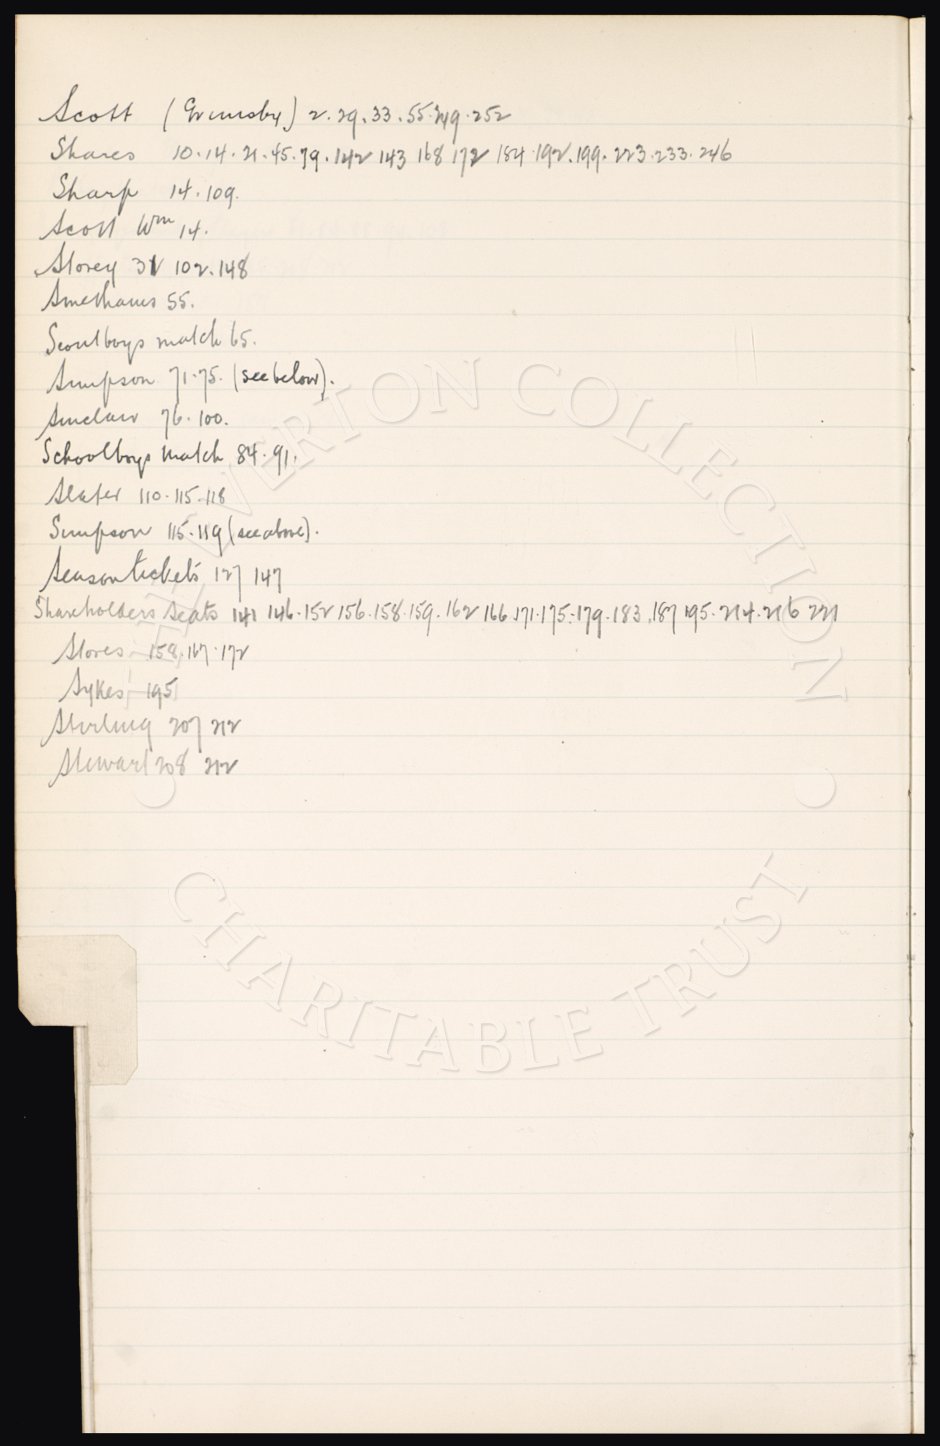 Scott (Grimsby) 2. 29. 33. 55. 249. 252
Shares 10. 14. 21. 45. 79. 142 143 168 172 184. 192. 199. 223. 233. 246
Sharp 14. 109.
Scott Wm 14.
Storey 31 102. 148
Smethams 55.
Scoutboys match 65.
Simpson 71. 75. (see below).
Sinclair 76. 100.
Schoolboys Match 84. 91.
Slater 110. 115. 118
Simpson 115. 119 (see above).
Season tickets 127 147
Shareholders Seats 141 146. 152 156. 158. 159. 162 166 171. 175. 179. 183. 187 195. 214. 216 221
Stores 158. 167. 172
Sykes 195
Stirling 207 212
Stewart 208 212
THE EVERTON COLLECTION
CHARITABLE TRUST